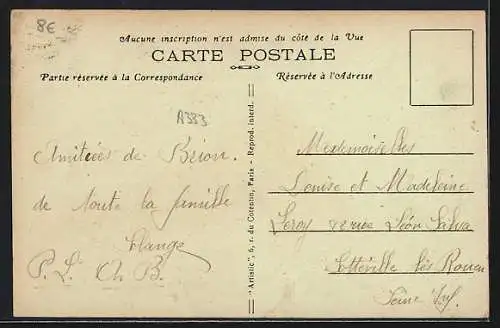 8€
Aucune inscription n'est admise du côté de la Vue
CARTE POSTALE
Partie réservée à la Correspondance
Réservée à l'Adresse
A383
Amitiées de Brion.
de toute la famille
P. L. Ch B.
"Artistic", 6, r. du Corentin, Paris - Reprod. interd.
Mesdemoiselles
Denise et Madeleine
Leroy rue Léon Salva
Sotteville lès Rouen
Seine Inf.